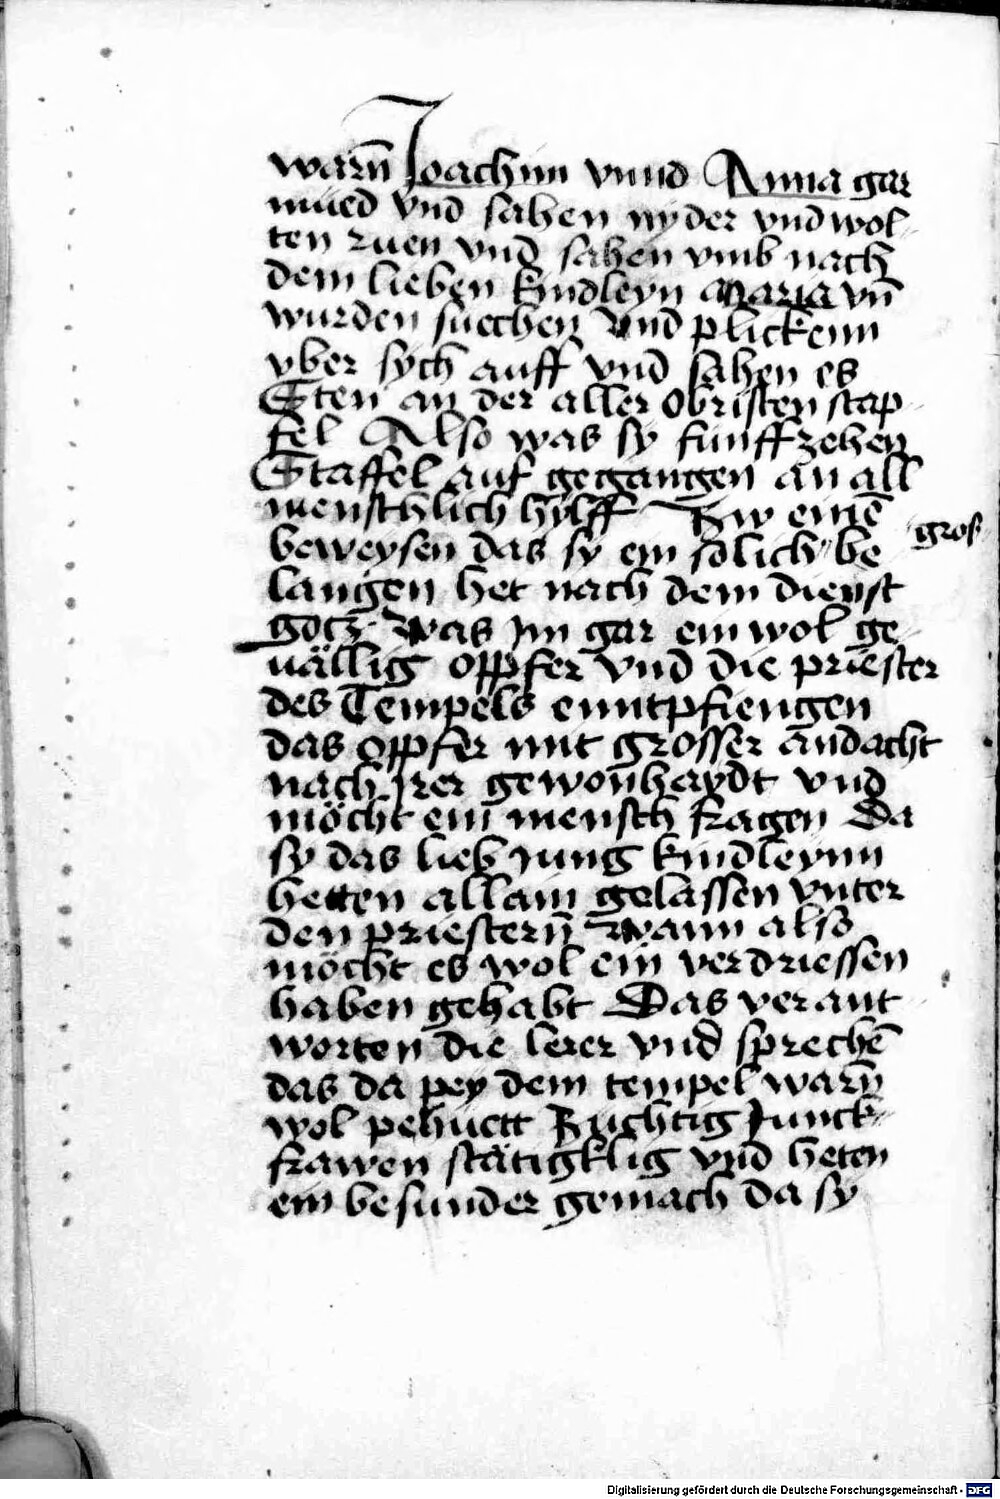 warn̄ Joachim vnnd Anna gar
müed vnd sahen nyder vnd wol-
ten ruen vnd sahen vmb nach
dem lieben kindleyn Maria vn̄
wurden suechen vnd plickenn
vber sych auff vnd sahen es
Sten an der aller obristen stap-
fel Also was sy funffzehen
Staffel auf gegangen an all
menschlich hylff Zw einē
beweysen das sy ein solich gros be-
langen het nach dem dienst
gotz was jm gar ein wol ge-
uällig opffer vnd die priester
des Tempels enntpfiengen
das opffer mit grosser andacht
nach jrer gewonhaydt vnd
möcht ein mensch fragen Da
sy das lieb jung kindleynn
hetten allain gelassen vnter
den priestern̄ wann also
möcht es wol ein verdriessen
haben gehabt Das verant-
worten die lerer vnd sprechē
das da pey dem tempel warn̄
wol pehuett Zuchtig Junck-
frawen stätigklig vnd heten
ein besunder gemach da sy
Digitalisierung gefördert durch die Deutsche Forschungsgemeinschaft - DFG